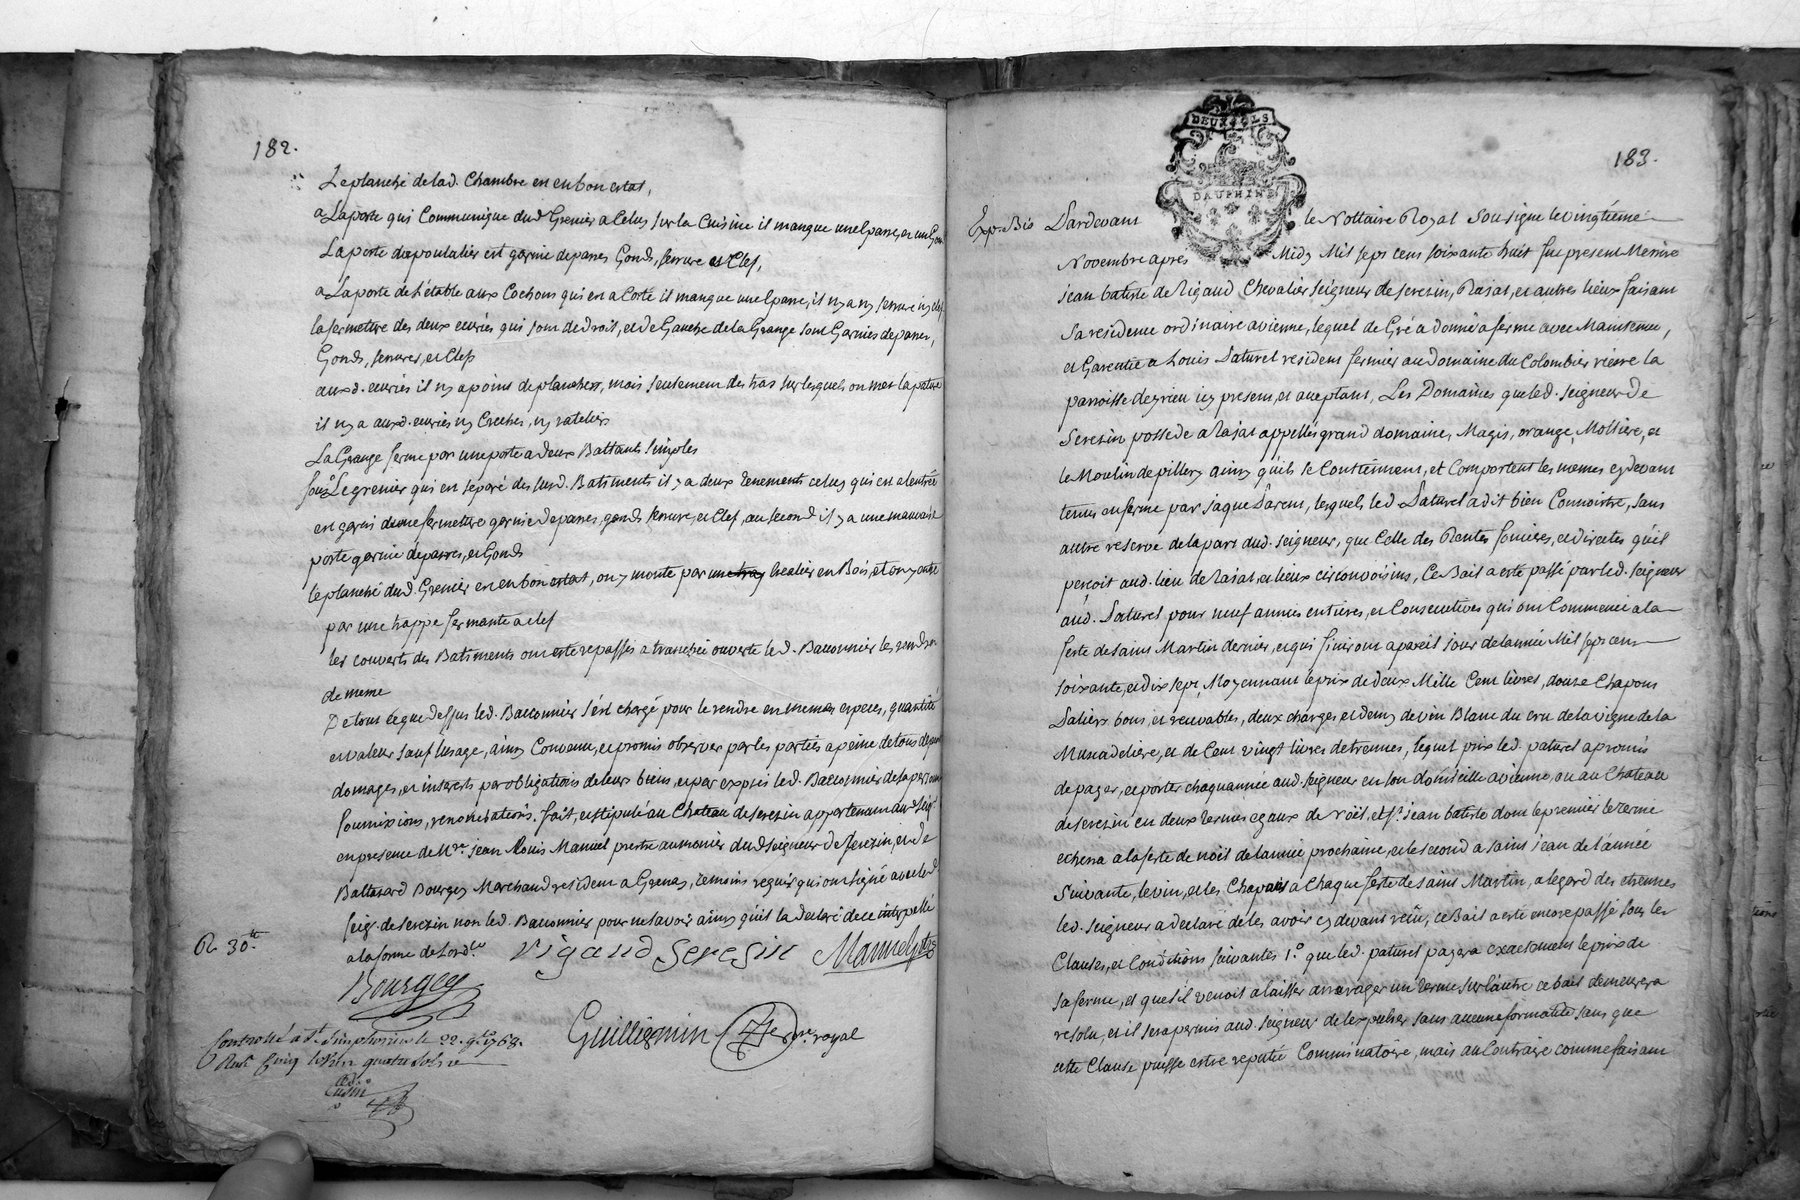 182.
Le planché de lad. Chambre en en bon estat,
a La porte qui Communique dud Grenier a Celuy sur la Cuisine il manque une Eparre, et un Gon
La porte du poulalier est garnie de parres Gonds, serrure et Clef,
a La porte de L'étable aux Cochons qui est a Coté il manque une Eparre, il ny a ny serrure ny clef
la fermeture des deux ecuries qui sont de droit, et de Gauche de la Grange sont Garnies de parres,
Gonds, serrures, et Clefs
auxd. ecuries il ny a point de planchers, mais seulement des tras sur lesquels on met la pature
il ny a auxd. ecuries ny Creches, ny rateliers
La Grange ferme par une porte a deux Battants simples
sous Le grenier qui est separé des susd. Batiments il y a deux tenements celuy qui est a lentrée
est garni d'une fermeture garnie de parres, gonds serrure, et Clef, au second il y a une mauvaise
porte garnie de parres, et Gonds
le planché dud. Grenier est en bon estat, on y monte par une tray Escalier en Bois, et on y entre
par une trappe fermante a clef
les couverts des Batiments ont esté repassés a tranchée ouverte led. Baconnier les rendra
de meme
De tout ce que dessus led. Baconnier s'est chargé pour le rendre en memes especes, quantité
et valeur sauf lusage, ainsy Convenu, et promis observer par les parties a peine de tous depens
domages, et interets par obligations de leurs biens, et par exprés led. Baconnier de sa personne
soumissions, renonciations. fait, et stipulé au Chateau de serezin appartenant aud. seigr.
en presence de Mre. jean Louis Manuel prestre aumonier dud seigneur de serezin, et de
Baltazard Bourgey Marchand resident a Grenay, temoins requis qui ont signé avec led.
seigr. de serezin non led. Baconnier pour ne savoir ainsy quil la declaré de ce interpellé
a la forme de lordce
R. 30.tt
rigaud serezin Manuel ptre
Bourgey
Guilliermin nre. royal
Controllé a St. Simphorien le 22. 9bre 1768.
183.
DEUX SOLS
DAUPHINE
Exp. Bis Pardevant le Nottaire Royal Sousigné le vingtieme
Novembre apres Midy Mil sept cent soixante huit fut present Messire
jean batiste de Rigaud Chevalier seigneur de serezin, Rajat, et autres lieux faisant
sa residence ordinaire a vienne, lequel de Gré a donné a ferme avec Maintenue,
et Garentie a Louis Paturel resident fermier au domaine du Colombier rierre la
parroisse deyrieu icy present, et aceptant, Les Domaines que led. seigneur De
Serezin possede a Rajat appellés grand domaine, Magis, orange, Mollière, et
le Moulin de pillery ainsy quils se Contiennent, et Comportent les memes cy devant
tenus en ferme par jaque Parent, lesquels led Paturel a dit bien Connoitre, sans
autre reserve de la part dud. seigneur, que Celle des Rentes fonieres, et directes quil
perçoit aud. lieu de Rajat, et lieux circonvoisins, Ce Bail a esté passé par led. seigneur
aud. Paturel pour neuf années entieres, et Consecutives qui ont Commencé a la
feste de saint Martin dernier, et qui finiront a pareil jour de lannée Mil sept cent
soixante, et dix sept, Moyennant le prix de deux Mille Cent livres, douze Chapons
Paliers bons, et recevables, deux charges et demy de vin Blanc du cru de la vigne de la
Muscadeliere, et de Cent vingt livres detrennes, lequel prix led. paturel a promis
de payer, et porter chaquannée aud. seigneur en son domicille a vienne, ou au Chateau
de serezin en deux termes egaux de noël, et st. jean batiste dont le premier terme
echerra a la feste de noël de lannée prochaine, et le second a saint jean de l'année
suivante, le vin, et les Chapons a Chaque feste de saint Martin, a legard des etrennes
led. seigneur a declaré de les avoir cy devant reçu, ce Bail a esté encore passé sous les
Clauses, et Conditions suivantes 1.° que led. paturel payera exactement le prix de
sa ferme, et que s'il venoit a laisser arrerager un terme sur l'autre ce bail demeurera
resolu, et il sera permis aud. seigneur de lexpulser sans aucune formalité sans que
cette Clause puisse estre reputée Comminatoire, mais au Contraire comme faisant